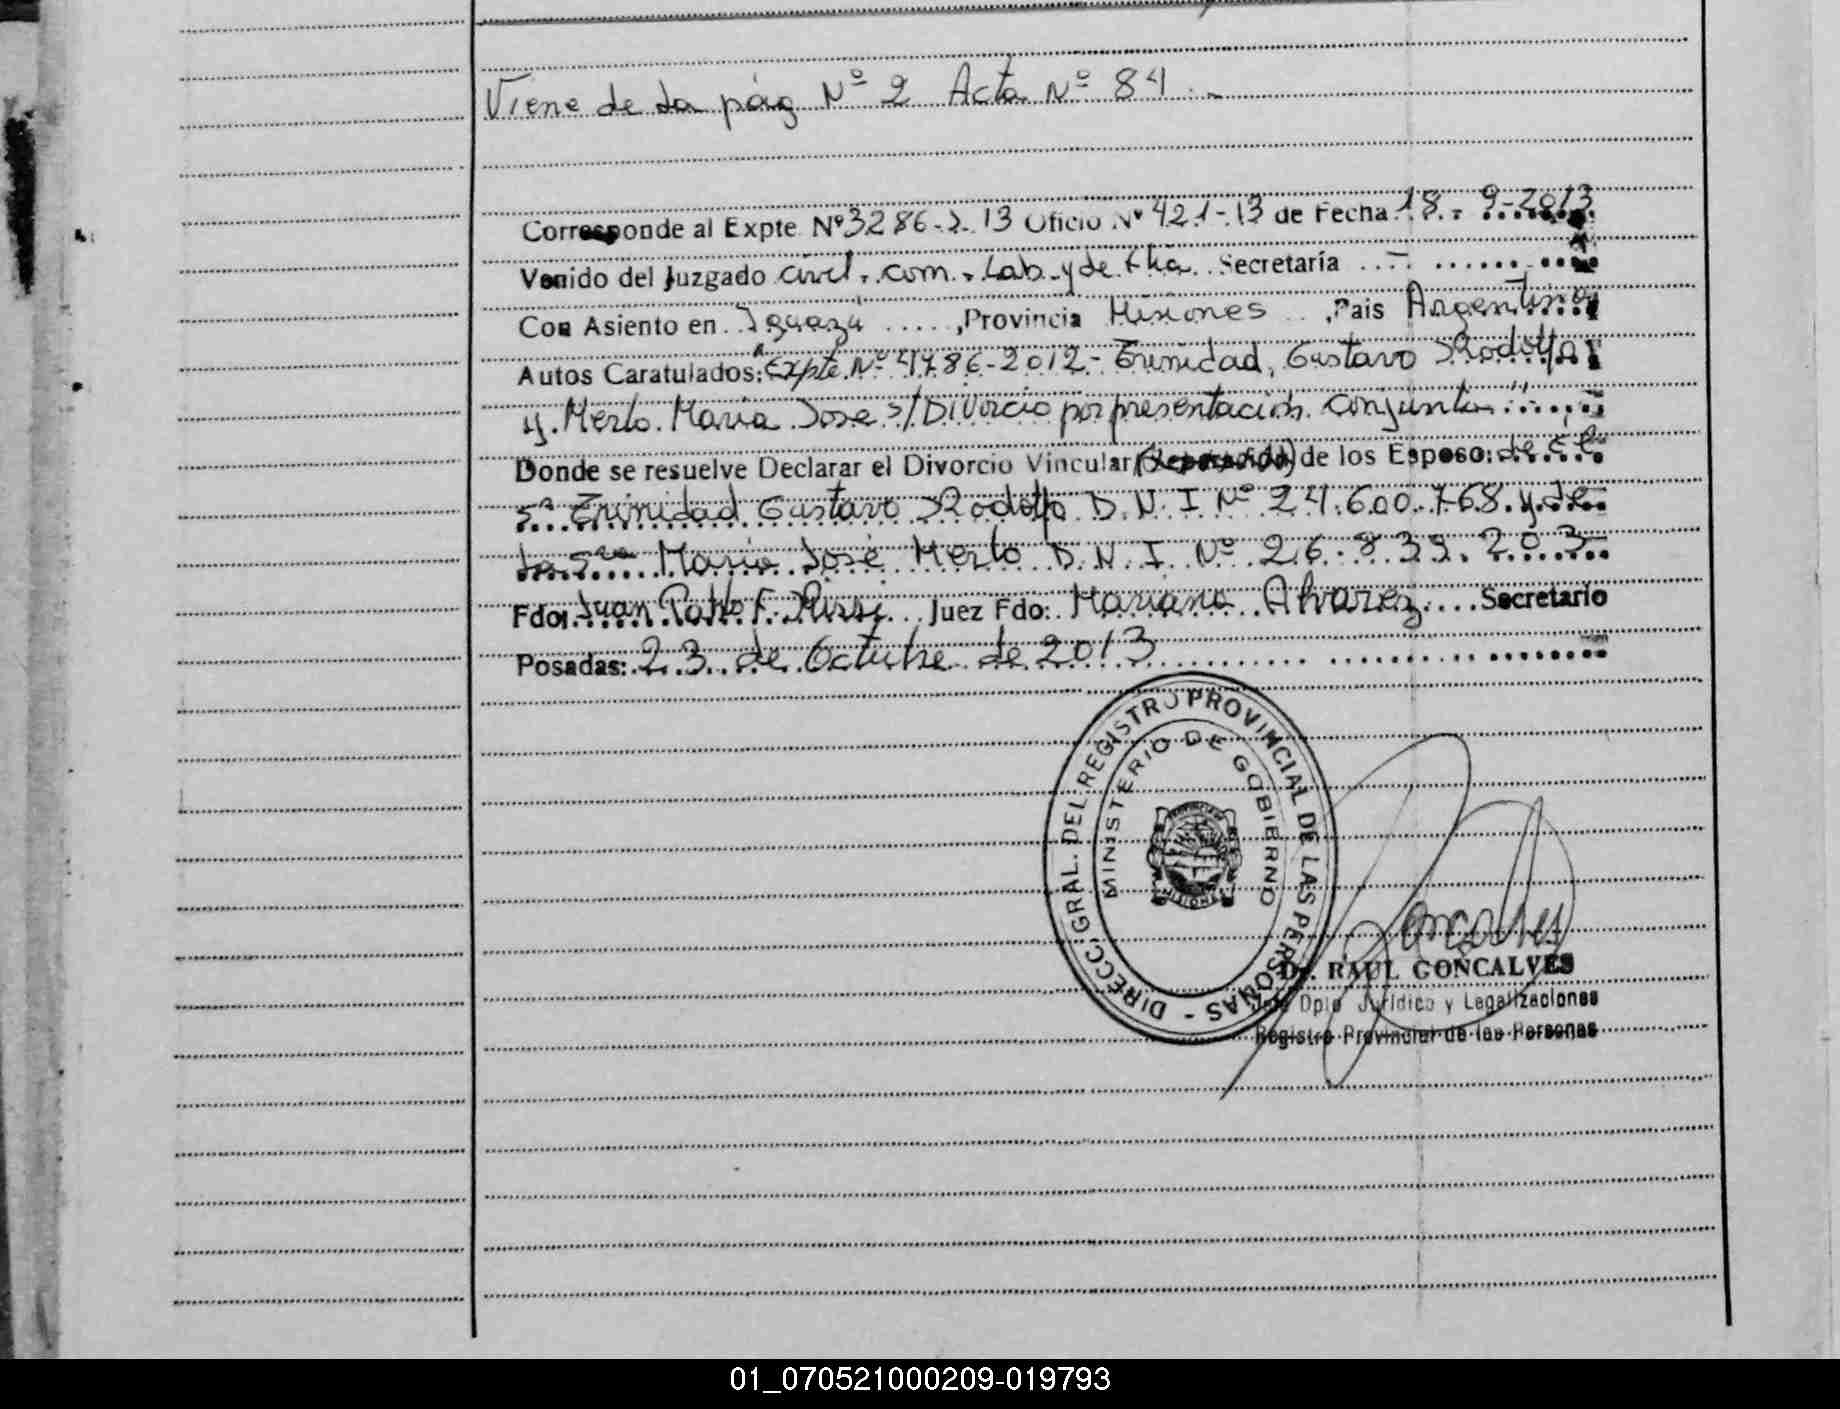 Viene de la pág Nº 2 Acta Nº 84.-
Corresponde al Expte Nº 3286-2-13 Oficio Nº 421-13 de Fecha 18-9-2013
Venido del Juzgado civil. com. Lab y de flia. Secretaría .... - ..........
Con Asiento en Iguazú ....., Provincia Misiones .., Pais Argentina
Autos Caratulados: "Expte Nº 4786-2012- Trinidad, Gustavo Rodolfo
y Merlo Maria Jose s/Divorcio por presentación conjunta"
Donde se resuelve Declarar el Divorcio Vincular de los Esposo: de el
Sr Trinidad Gustavo Rodolfo D.N.I Nº 24.600.768 y de
la Sra Maria José Merlo D.N.I. Nº 26.839.203
Fdo: Juan Pablo F. Juez Fdo: Mariano Alvarez .... Secretario
Posadas: 23 de Octubre de 2013
DIRECC. GRAL. DEL REGISTRO PROVINCIAL DE LAS PERSONAS -
MINISTERIO DE GOBIERNO
MISIONES
Dr. RAUL GONCALVES
Jefe Dpto Jurídico y Legalizaciones
Registro Provincial de las Personas
01_070521000209-019793